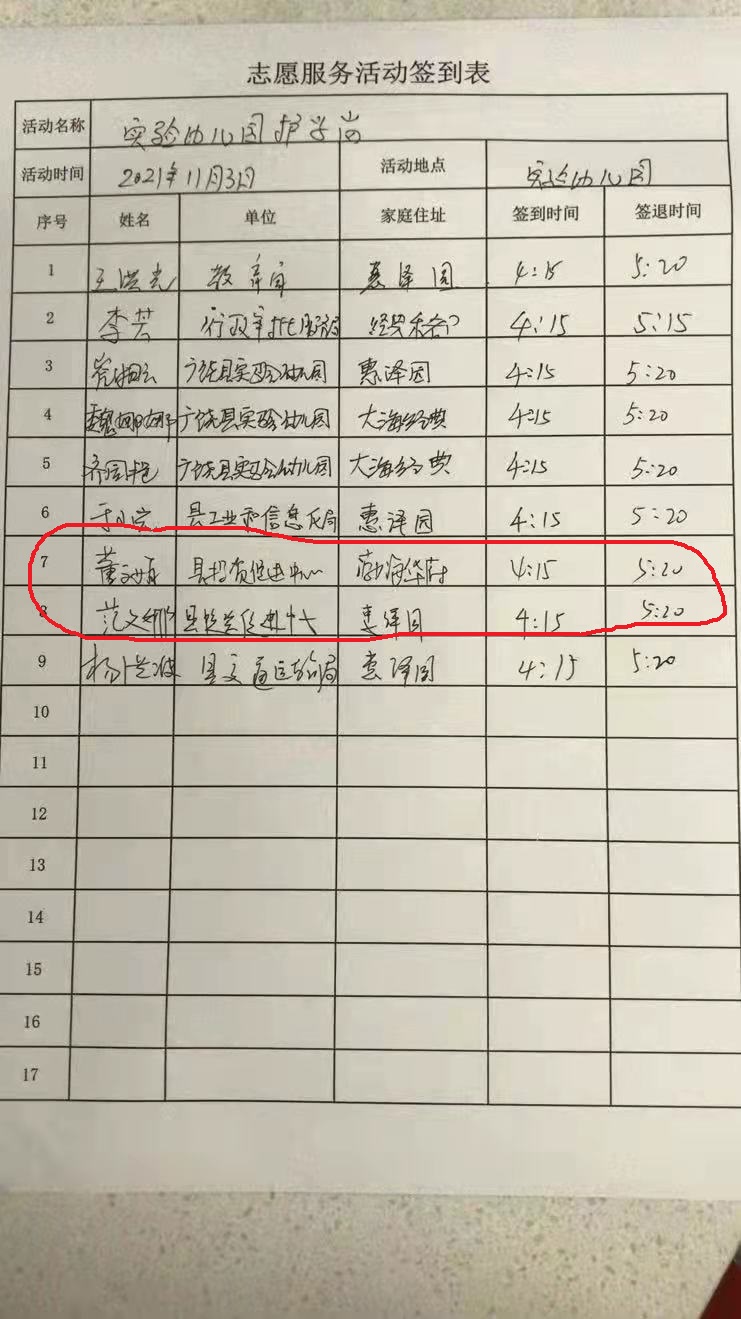 志愿服务活动签到表
活动名称 实验幼儿园护学岗
活动时间 2021年11月3日 活动地点 实验幼儿园
序号 姓名 单位 家庭住址 签到时间 签退时间
1 王洪光 教育局 惠泽园 4:15 5:20
2 李芸 行政审批服务局 4:15 5:15
3 广饶县实验幼儿园 惠泽园 4:15 5:20
4 魏娜娜 广饶县实验幼儿园 大海经典 4:15 5:20
5 广饶县实验幼儿园 大海经典 4:15 5:20
6 县工业和信息化局 惠泽园 4:15 5:20
7 董文娟 县投资促进中心 渤海华府 4:15 5:20
8 范文娜 县投资促进中心 惠泽园 4:15 5:20
9 县交通运输局 惠泽园 4:15 5:20
10
11
12
13
14
15
16
17